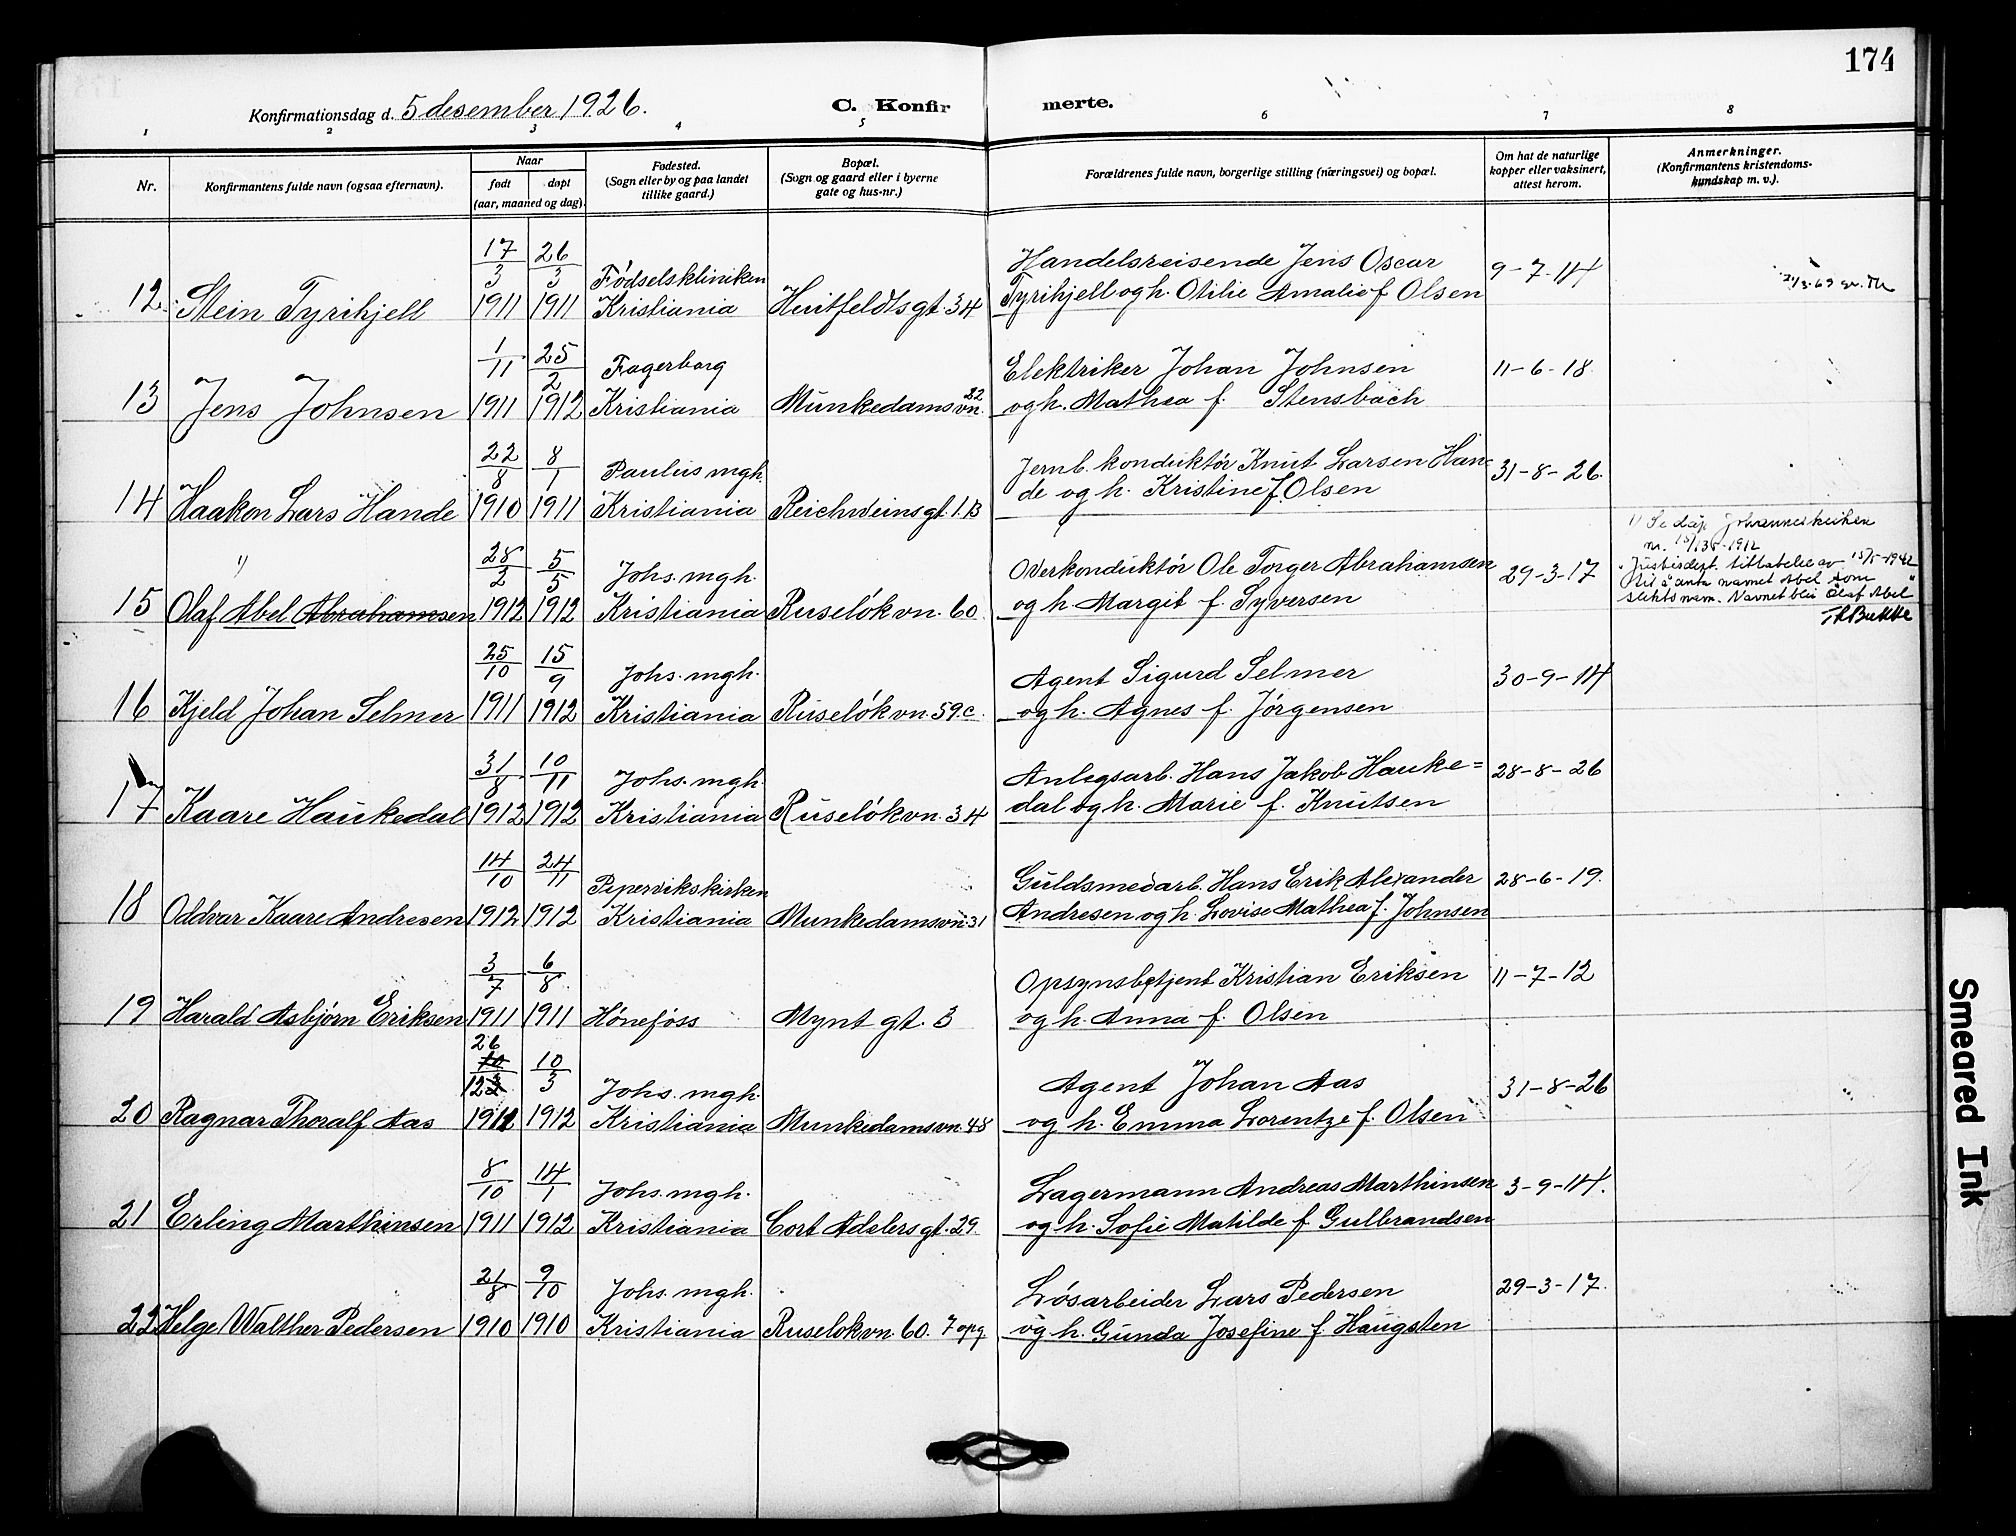 174
Konfirmationsdag d. 5 desember 1926.
C. Konfirmerte.
1 2 3 4 5 6 7 8
Nr.
Konfirmantens fulde navn (ogsaa efternavn).
Naar
født døpt
(aar, maaned og dag).
Fødested.
(Sogn eller by og paa landet
tillike gaard.)
Bopæl.
(Sogn og gaard eller i byerne
gate og hus-nr.)
Forældrenes fulde navn, borgerlige stilling (næringsvei) og bopæl.
Om hat de naturlige
kopper eller vaksinert,
attest herom.
Anmerkninger.
(Konfirmantens kristendoms-
kundskap m. v.).
17/3 26/3 Fødselskliniken Handelsreisende Jens Oscar 9-7-14
12 Stein Tyrihjell 1911 1911 Kristiania Huitfeldtsgt. 34 Tyrihjell og h. Otilie Amalie f. Olsen
1/11 25/2 Fagerborg Elektriker Johan Johnsen 11-6-18.
13 Jens Johnsen 1911 1912 Kristiania Munkedamsvn. 22 og h. Mathea f. Stensbach
22/8 8/1 Paulus mgh. Jernb. konduktør Knut Larsen Han- 31-8-26.
14 Haakon Lars Hande 1910 1911 Kristiania Reichweinsgt. 1.B de og h. Kristine f. Olsen
1) 28/2 5/5 Johs. mgh. Overkonduktør Ole Torger Abrahamsen 29-3-17
15 Olaf Abel Abrahamsen 1912 1912 Kristiania Ruseløkvn. 60 og h Margit f. Syversen
1) Se dåp Johanneskirken
nr. 15/135-1912
Justisdept. tillatelse av 15/5-1942
til å anta navnet Abel som
slektsnavn. Navnet blir Olaf Abel
25/10 15/9 Johs. mgh. Agent Sigurd Selmer 30-9-14
16 Kjeld Johan Selmer 1911 1912 Kristiania Ruseløkvn. 59.c. og h. Agnes f. Jørgensen
31/8 10/11 Johs. mgh. Anlegsarb. Hans Jakob Hauke= 28-8-26
17 Kaare Haukedal 1912 1912 Kristiania Ruseløkvn. 34 dal og h. Marie f. Knutsen
14/10 24/11 Pipervikskirken Guldsmedarb. Hans Erik Alexander 28-6-19.
18 Oddvar Kaare Andresen 1912 1912 Kristiania Munkedamsvn. 31 Andresen og h. Lovise Mathea f. Johnsen
3/7 6/8. Opsynsbetjent Kristian Eriksen 11-7-12
19 Harald Asbjørn Eriksen 1911 1911 Hønefoss Mynt gt. 3 og h. Anna f. Olsen
26 10 12 3 10/3 Johs. mgh. Agent Johan Aas 31-8-26
20 Ragnar Thoralf Aas 1911 1912 Kristiania Munkedamsvn. 48 og h. Emma Lorentze f. Olsen
8/10 14/1 Johs. mgh. Lagermann Andreas Marthinsen 3-9-14.
21 Erling Marthinsen 1911 1912 Kristiania Cort Adelersgt. 29. og h. Sofie Matilde f. Gulbrandsen
21/8 9/10 Johs. mgh. Løsarbeider Lars Pedersen 29-3-17.
22 Helge Walther Pedersen 1910 1910 Kristiania Ruseløkvn. 60. 7 opg og h. Gunda Josefine f. Haugsten
Smeared Ink